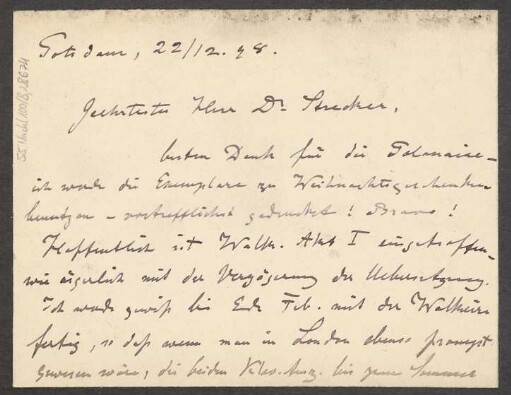 Potsdam, 22/12. 98.
Geehrtester Herr Dr Strecker,
besten Dank für die Polonaise –
ich werde die Exemplare zu Weihnachtsgeschenken
benutzen – vortrefflichst gedruckt! Bravo!
Hoffentlich ist Walk. Akt I eingetroffen –
wie ärgerlich mit der Verzögerung der Uebersetzung.
Ich werde gewiß bis Ende Feb. mit der Walküre
fertig, so daß wenn man in London ebenso prompt
gewesen wäre, die beiden Klav. Ausz. bis zum Sommer